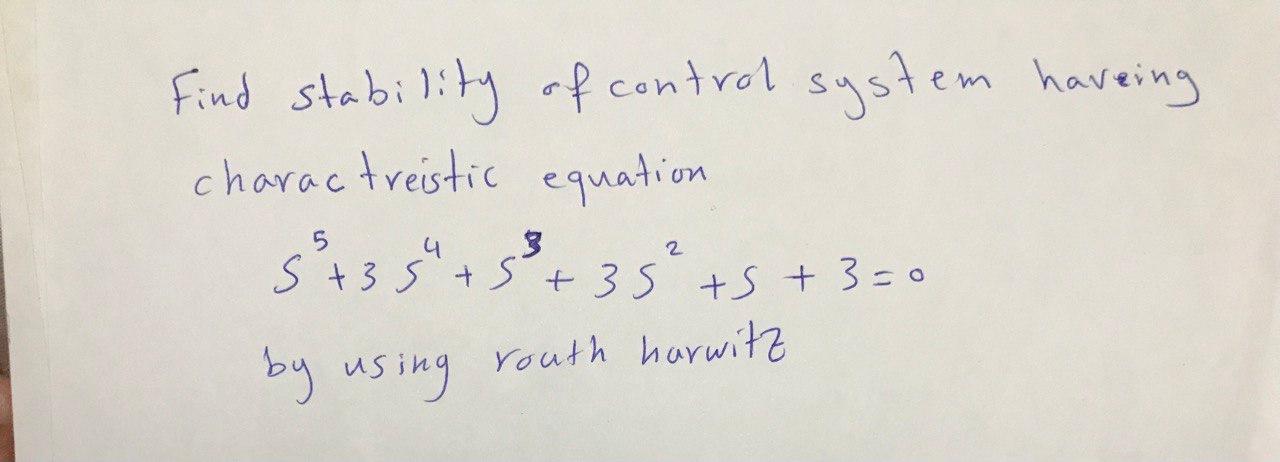 Find stability of control system haveing
charactreistic equation
S⁵+3S⁴+S³+3S²+S+3=0
by using routh harwitz